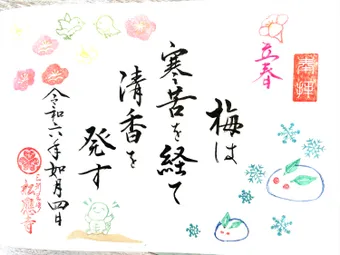 立春
奉拝
梅は
寒苦を経て
清香を
発す
令和六年如月四日
松應寺